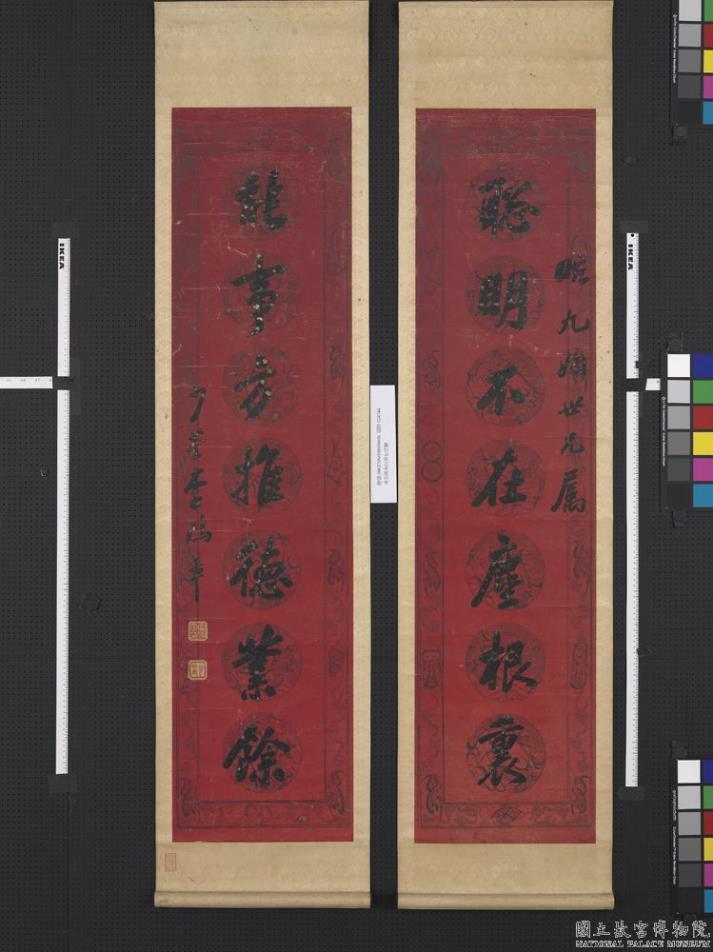 九姻世兄屬
聰明不在塵根裏
能事方推德業餘
少荃李鴻章
IKEA
IKEA
國立故宮博物院
NATIONAL PALACE MUSEUM